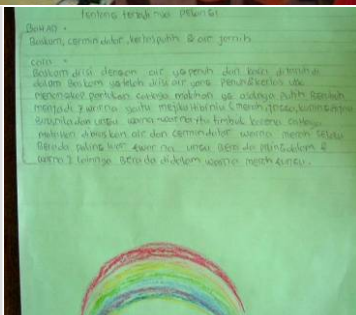 tentang terjadinya pelangi
BAHAN =
Baskom, cermin datar, kertas putih & air jernih
cara =
Baskom diisi dengan air yg penuh dan kaca ditaruh di
dalam Baskom yg telah diisi air yang penuh & kertas utk
menangkap pantulan cahaya matahari
menjadi 7 warna yaitu mejikuhibiniu (merah, jingga, kuning, hijau
dan ungu warna-warna itu timbul karena cahaya
matahari dibiaskan air dan cermin datar warna merah selalu
Berada paling luar & warna ungu Berada paling dalam &
warna 2 lainnya Berada didalam warna merah & ungu.